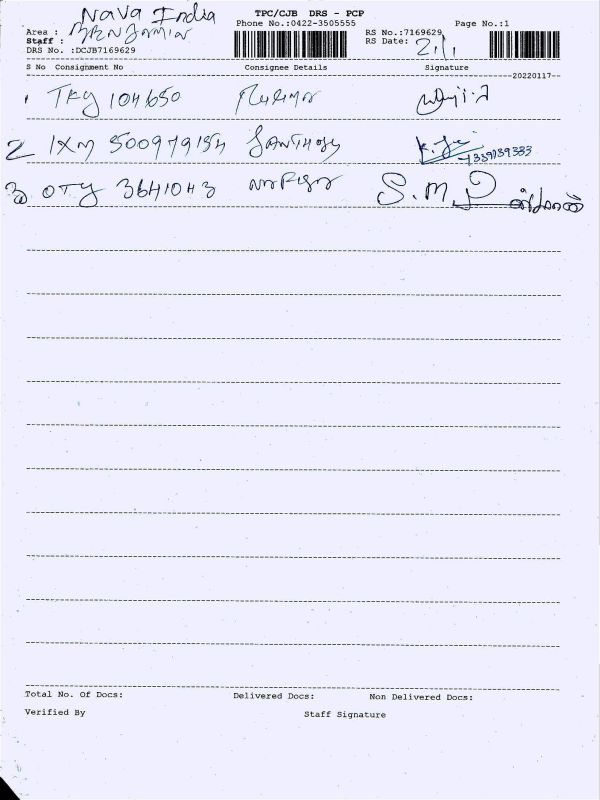 Nava India
TPC/CJB DRS - PCP
Area :
Phone No.:0422-3505555
Page No.:1
Staff : BENJAMIN
RS No.:7169629
DRS No. :DCJB7169629
RS Date: 21/1
S No Consignment No Consignee Details Signature
20220117
1 TKY 104650
2 IXM 500979154 SANTHOSH 7339139333
3 OTY 3641043 S.M.
Total No. Of Docs: Delivered Docs: Non Delivered Docs:
Verified By Staff Signature